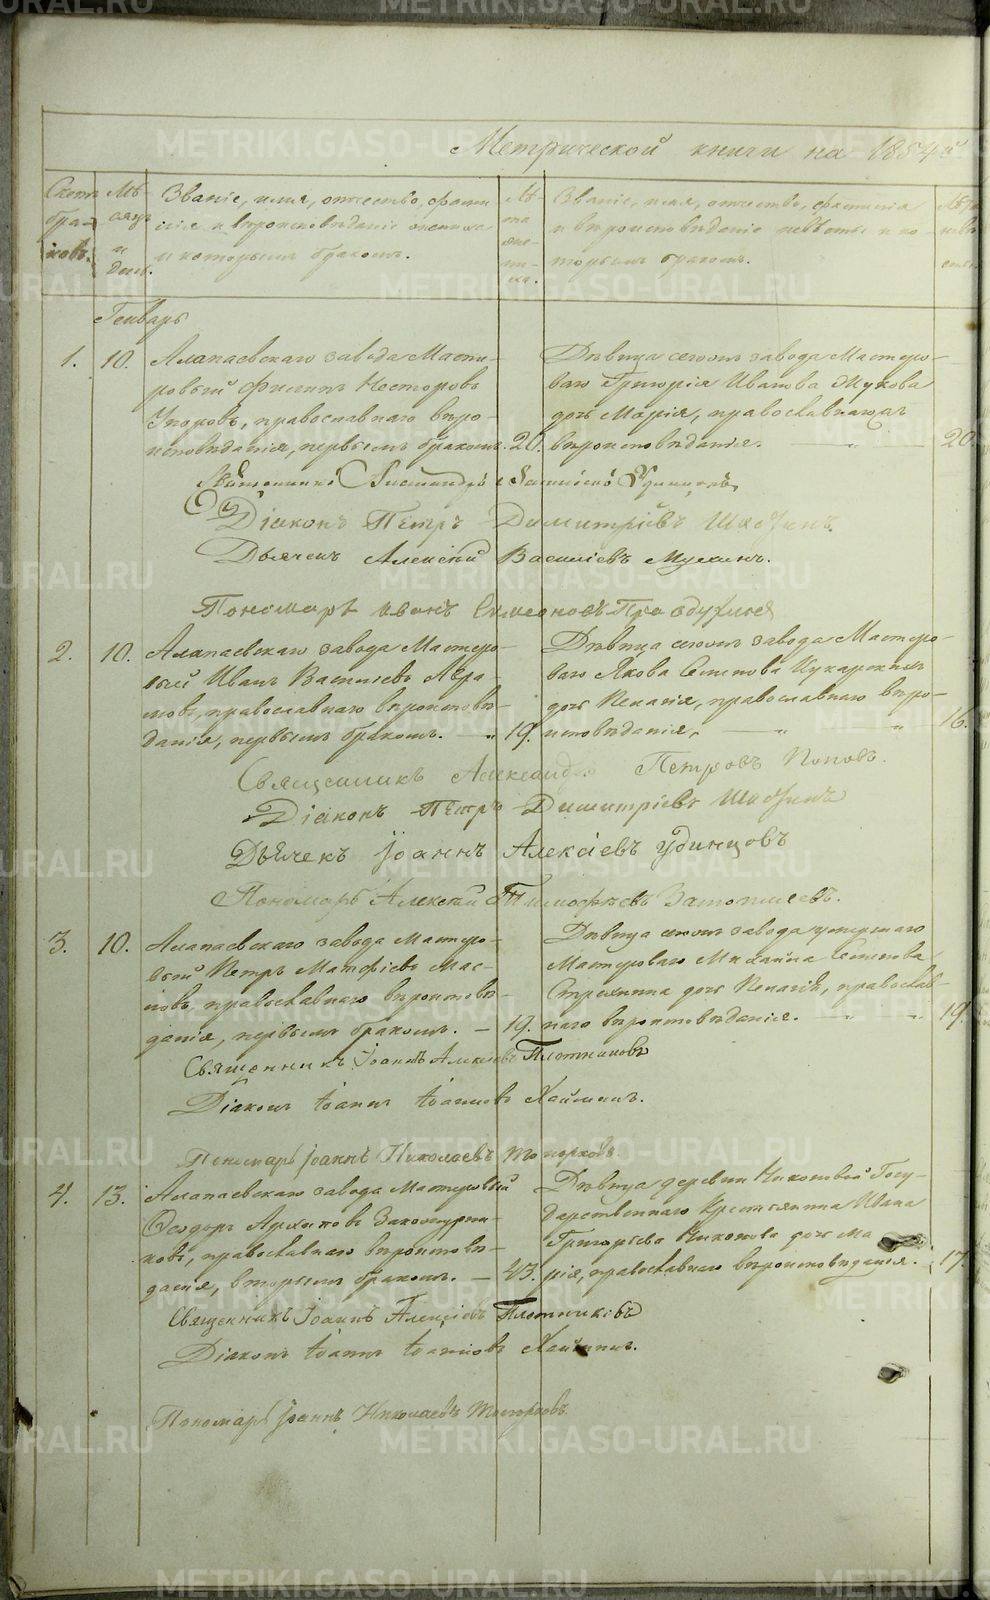 Метрической книги на 1854й
Счетъ браковъ.
Мѣсяцъ и день.
Званіе, имя, отчество, фами
лія и вѣроисповѣданіе жениха
и которымъ бракомъ.
Лѣта жениха.
Званіе, имя, отчество, фамилія
и вѣроисповѣданіе невѣсты и ко-
торымъ бракомъ.
Генварь
1. 10. Алапаевскаго завода Масте-
ровый Филипъ Несторовъ
православнаго вѣро
исповѣданія, первымъ бракомъ. 20.
Дѣвица сегожъ завода Мастеро-
ваго Григорія Иванова Жукова
дочь Марія, православнаго
вѣроисповѣданія. — " — 20
Священникъ Александръ Удинцовъ
Діаконъ Петръ Димитріевъ
Дьячекъ Алексій Василіевъ
Пономарь Иванъ Симеоновъ
2. 10. Алапаевскаго завода Мастеро-
вый Иванъ Васильевъ
православнаго вѣроисповѣ-
данія, первымъ бракомъ. " 19.
Дѣвица сегожъ завода Мастеро-
ваго Якова Семенова
дочь Пелагія, православнаго вѣро-
исповѣданія, — " " 16.
Священникъ Александръ Петровъ Поповъ.
Діаконъ Петръ Димитріевъ
Дьячекъ Іоаннъ Алексіевъ Удинцовъ
Пономарь Алексій Тимофѣевъ
3. 10. Алапаевскаго завода Мастеро-
вый Петръ Матфіевъ Мас-
ловъ, православнаго вѣроисповѣ-
данія, первымъ бракомъ. — 19.
Дѣвица сегожъ завода умершаго
Мастероваго Михаила Семенова
дочь Пелагія, православ-
наго вѣроисповѣданія. " " 19.
Священникъ Іоаннъ Алексіевъ Плотниковъ
Діаконъ Іоаннъ Іоанновъ
Пономарь Іоаннъ Николаевъ Топорковъ.
4. 13. Алапаевскаго завода Мастеровый
Ѳеодоръ Архиповъ Закожурни-
ковъ, православнаго вѣроисповѣ-
данія, вторымъ бракомъ. — 43.
Дѣвица деревни Никоновой Госу-
дарственнаго Крестьянина Ивана
Григорьева Никонова дочь Ма
рія, православнаго вѣроисповѣданія. 17.
Священникъ Іоаннъ Алексіевъ Плотниковъ
Діаконъ Іоаннъ Іоанновъ
Пономарь Іоаннъ Николаевъ Топорковъ.
METRIKI.GASO-URAL.RU